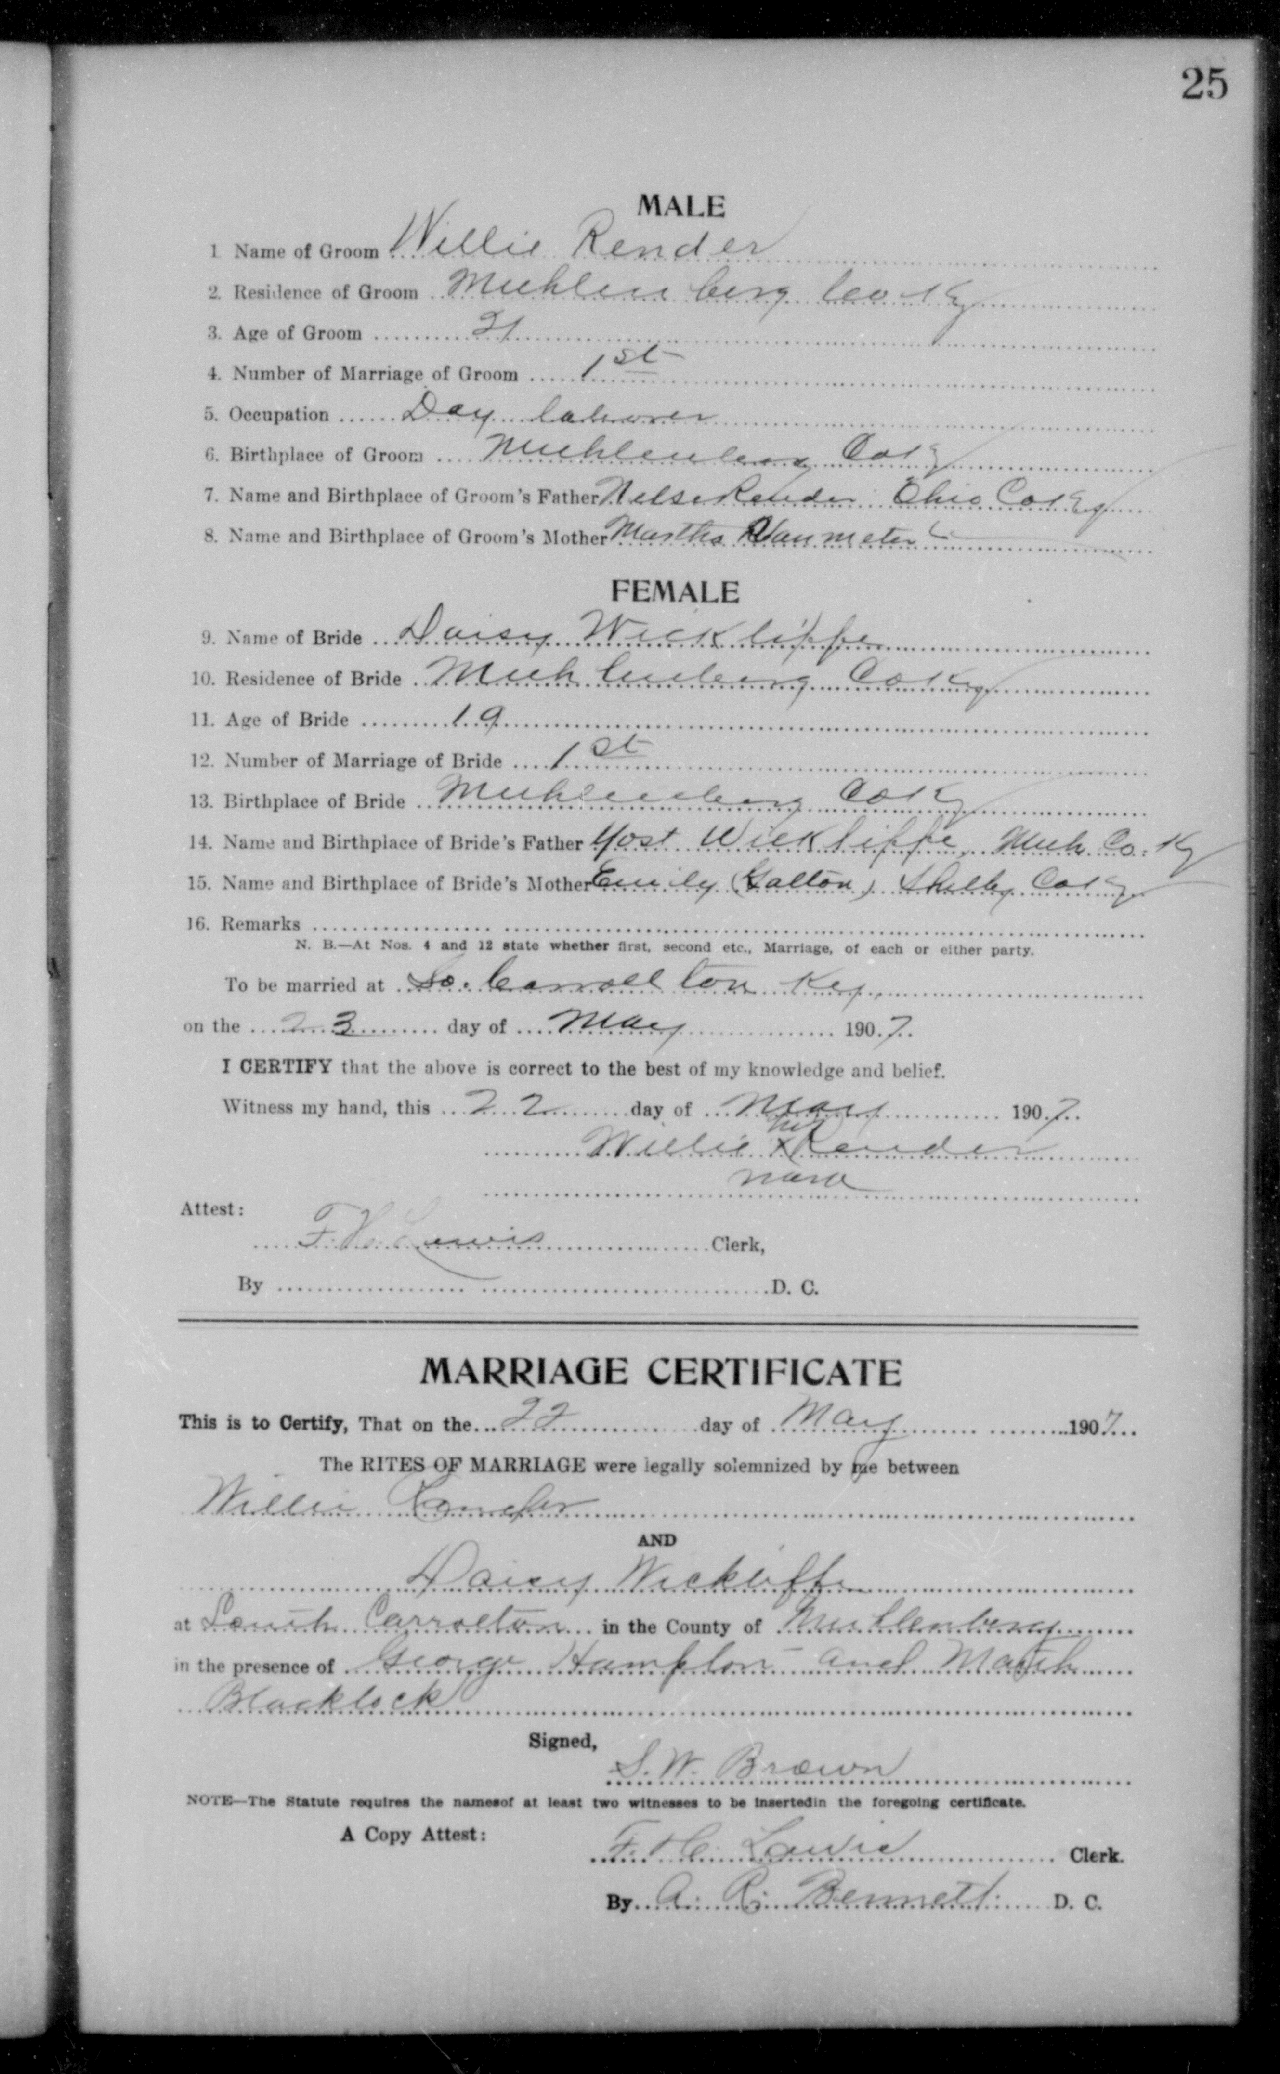 25
MALE
1. Name of Groom Willie Render
2. Residence of Groom Muhlenberg Co Ky
3. Age of Groom 21
4. Number of Marriage of Groom 1st
5. Occupation Day laborer
6. Birthplace of Groom Muhlenberg Co Ky
7. Name and Birthplace of Groom's Father Nelse Render Ohio Co Ky
8. Name and Birthplace of Groom's Mother Martha Vanmeter "
FEMALE
9. Name of Bride Daisy Wickliffe
10. Residence of Bride Muhlenberg Co Ky
11. Age of Bride 19
12. Number of Marriage of Bride 1st
13. Birthplace of Bride Muhlenberg Co Ky
14. Name and Birthplace of Bride's Father Yost Wickliffe, Muh Co. Ky
15. Name and Birthplace of Bride's Mother Emily (Galton) Shelby Co Ky
16. Remarks
N. B.—At Nos. 4 and 12 state whether first, second etc., Marriage, of each or either party.
To be married at So. Carrollton Ky.
on the 23 day of May 1907.
I CERTIFY that the above is correct to the best of my knowledge and belief.
Witness my hand, this 22 day of May 1907.
his
Willie X Render
mark
Attest:
F. H. Lewis Clerk,
By D. C.
MARRIAGE CERTIFICATE
This is to Certify, That on the 22 day of May 1907.
The RITES OF MARRIAGE were legally solemnized by me between
Willie Render
AND
Daisy Wickliffe
at South Carrolton in the County of Muhlenberg
in the presence of George Hampton and
Blacklock
Signed,
S. W. Brown
NOTE—The Statute requires the namesof at least two witnesses to be insertedin the foregoing certificate.
A Copy Attest:
F. H. Lewis Clerk.
By A. R. Bennett D. C.